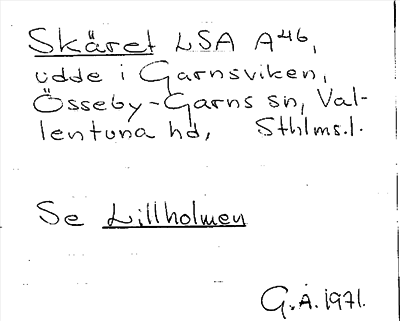 Skäret LSA A46,
udde i Garnsviken,
Össeby-Garns sn, Val-
lentuna hd, Sthlms.l.
Se Lillholmen
G.A. 1971.